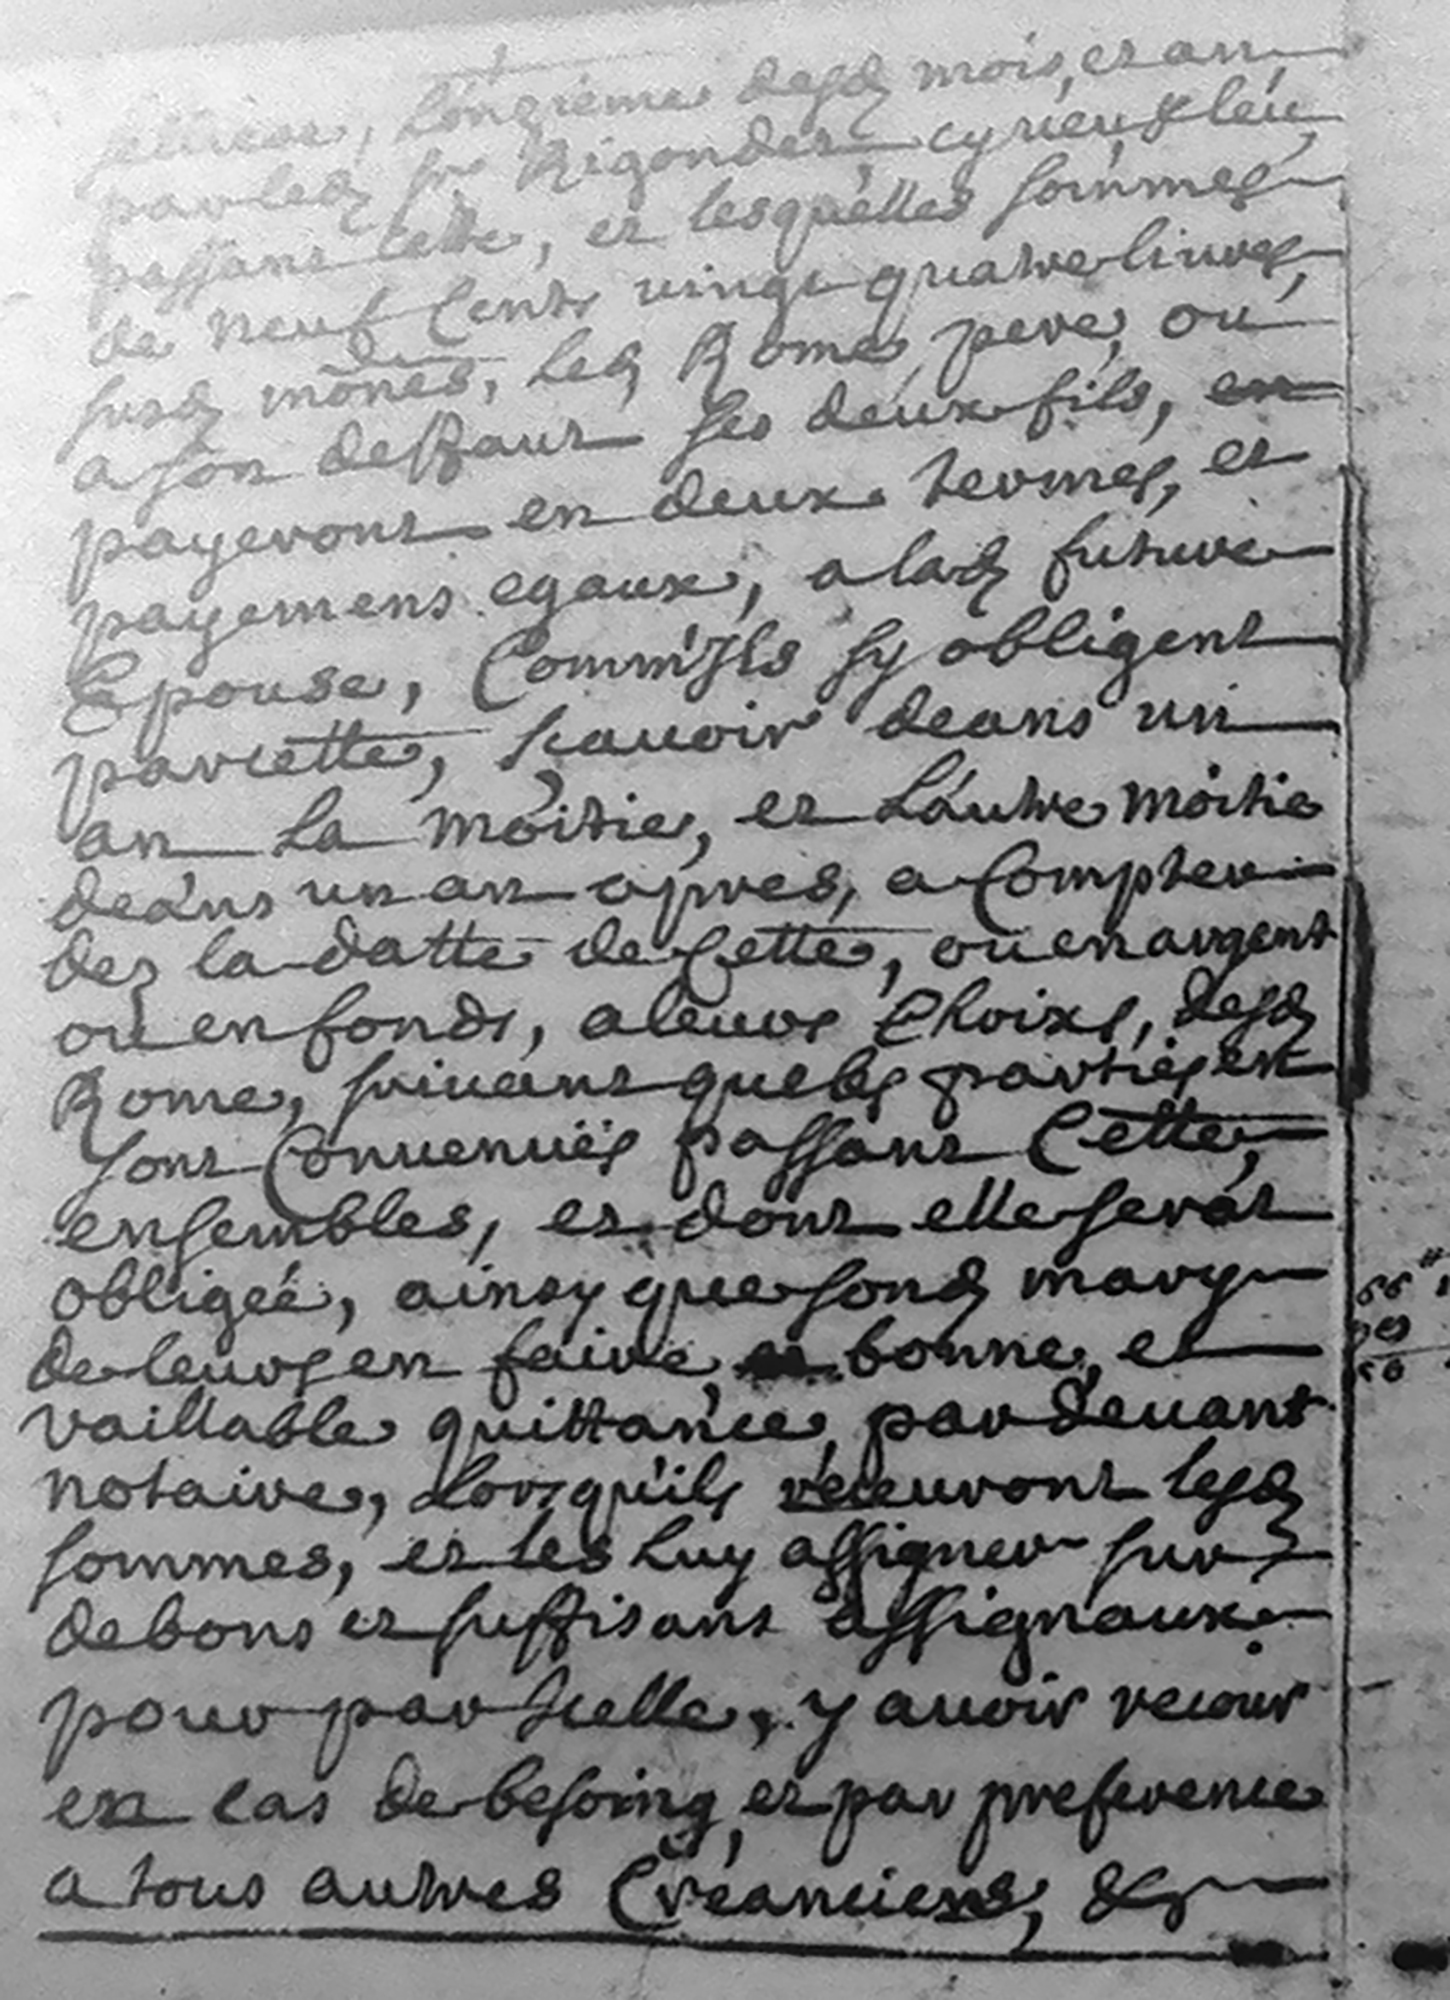 L'onzieme desd mois, et an
par led sr Rigondes cy rieu, & leü
passant cette, et lesquelles sommes
de neuf Cents vingt quatre livres,
susd du mônes, led Rome pere, ou
a son deffaut ses deux fils, en
payeront en deux termes, et
payemens egaux, a lad future
Epouse, Comm'Jls sy obligent
parcette, sçauoir deans un
an La moitie, et L'autre moitie
deans un an apres, a Compter
dez la datte de Cette, ou en argent
ou en fonds, a leurs Choixs, desd
Rome, suiuant que les parties en
sont Conuenuës passant Cette,
ensembles, et dont elle serat
obligeé, ainsy que sond mary
de leurs en faire, bonne, et
vaillable quittance, par deuant
notaire, Lorsqu'ils receuront lesd
sommes, et les Luy assigner sur
de bons et suffisans assignaux
pour par Jcelle, y auoir recour
en cas de besoing, et par preference
a tous autres Créanciers, &